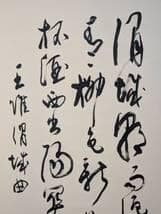 渭城朝雨浥
青々柳色新
杯酒西出陽關
王維渭城曲